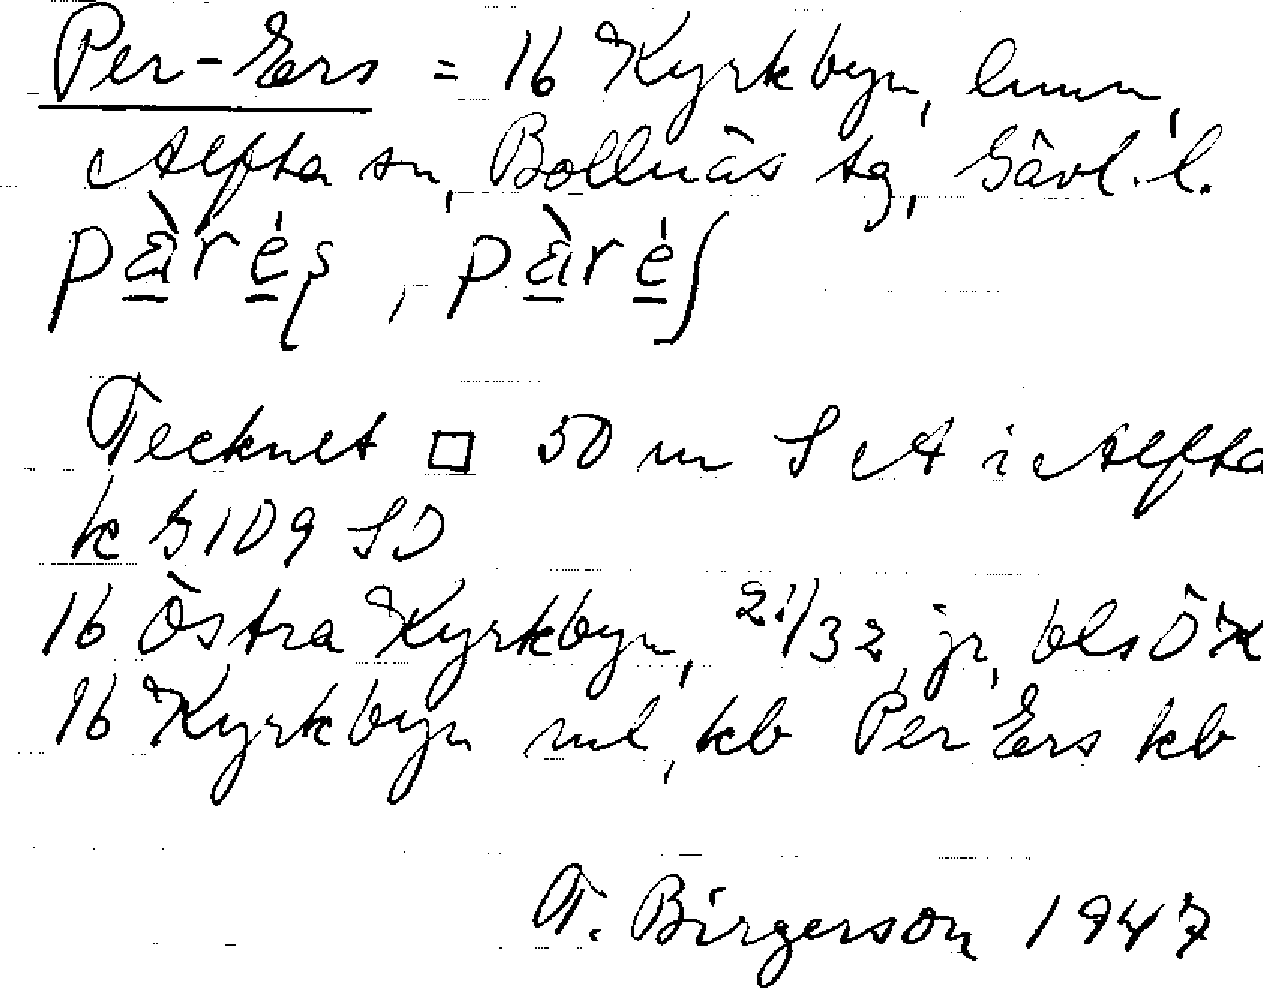 Per-Ers = 16 Kyrkbyn, hmn,
Alfta sn, Bollnäs tg, Gävl. l.
Tecknet □ 50 m S A i Alfta
k G109 SO
16 Östra Kyrkbyn, 21/32, jr, bls ÖK
16 Kyrkbyn ml, kb Per Ers kb
T. Birgerson 1947